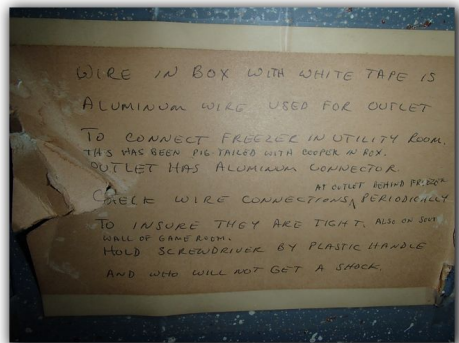 WIRE IN BOX WITH WHITE TAPE IS
ALUMINUM WIRE USED FOR OUTLET
TO CONNECT FREEZER IN UTILITY ROOM.
THIS HAS BEEN PIG-TAILED WITH COOPER IN BOX.
OUTLET HAS ALUMINUM CONNECTOR.
AT OUTLET BEHIND FREEZER
CHECK WIRE CONNECTIONS PERIODICALLY
TO INSURE THEY ARE TIGHT. ALSO ON
WALL OF GAME ROOM.
HOLD SCREWDRIVER BY PLASTIC HANDLE
AND WHO WILL NOT GET A SHOCK.